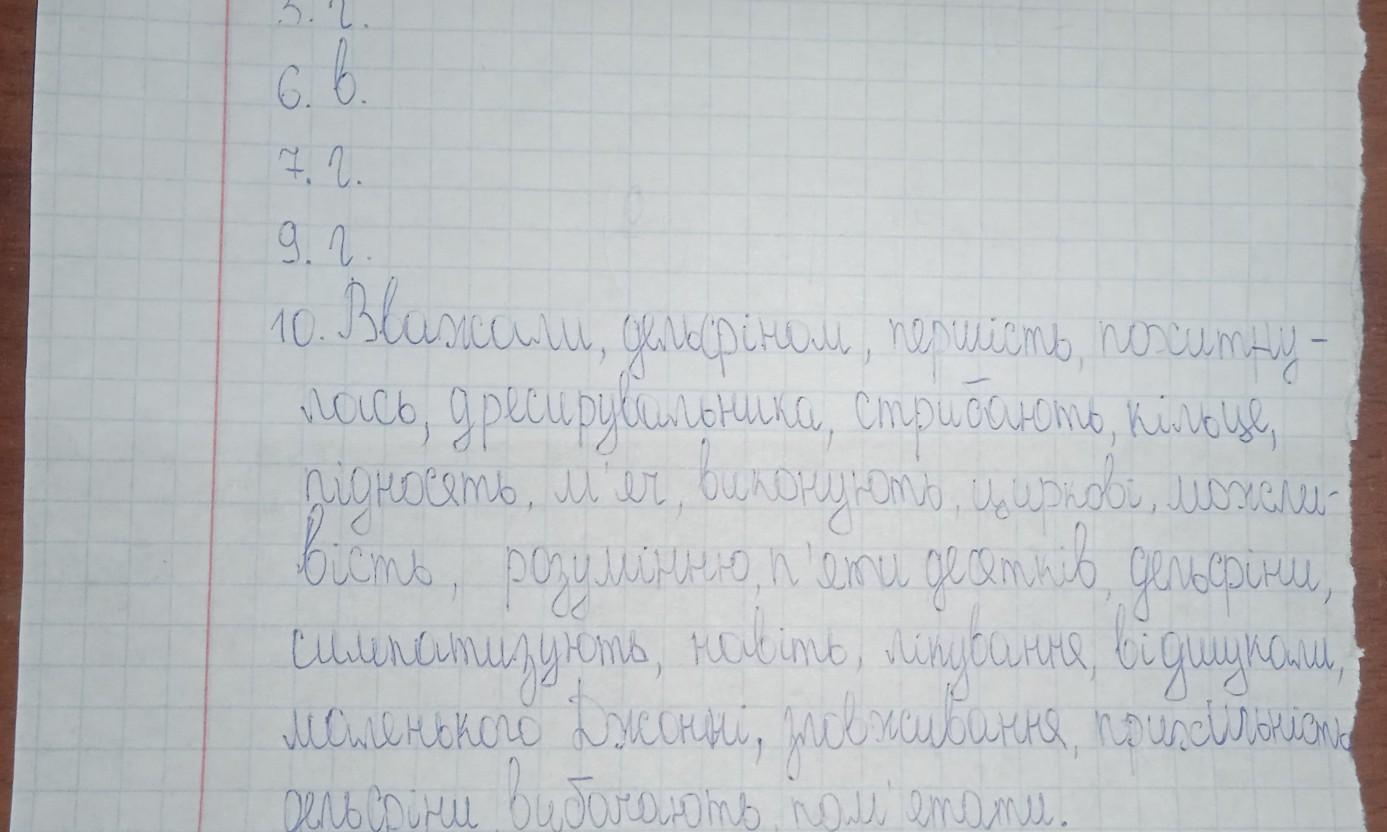 5. г.
6. в.
7. г.
9. г.
10. Вважали, дельфіном, першість, похитну-
лась, дресирувальника, стрибають, кільце,
підносять, м'яч, виконують, циркові, можли-
вість, розумінню, п'яти десятків, дельфіни,
симпатизують, навіть, лікування, відшукали,
маленького Джонні, зловживання, прихільність
дельфіни вибачають, пам'ятати.